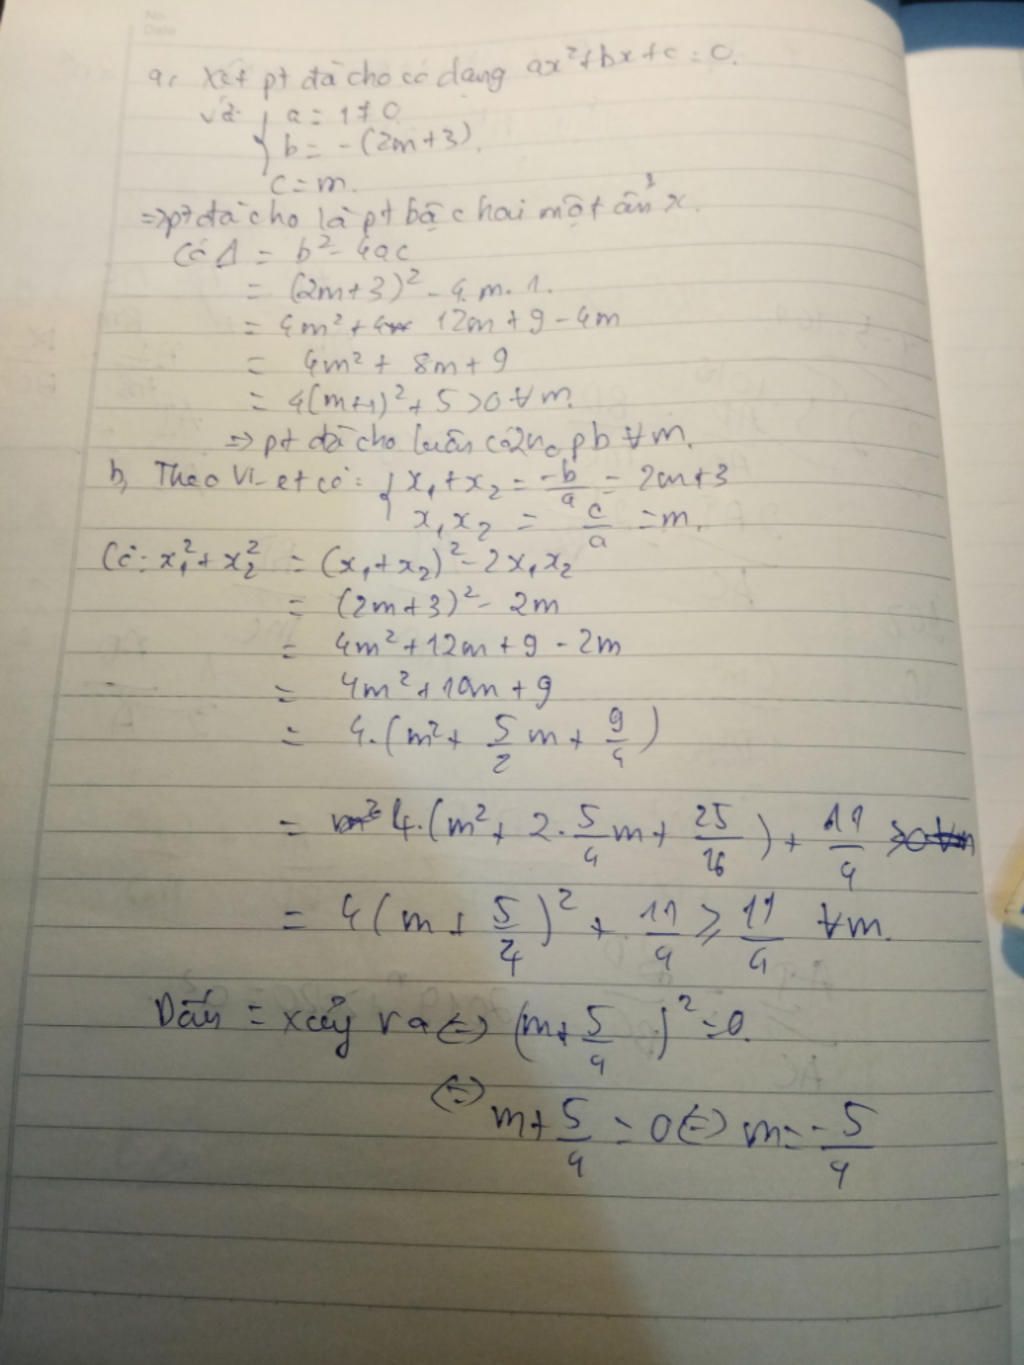 No.
Date
a, Xét pt đã cho có dạng ax²+bx+c=0.
với { a = 1 ≠ 0
b = -(2m+3).
c = m.
=> pt đã cho là pt bậc hai một ẩn x.
Có Δ = b² - 4ac
= (2m+3)² - 4.m.1.
= 4m² + 12m + 9 - 4m
= 4m² + 8m + 9
= 4(m+1)² + 5 > 0 ∀m.
=> pt đã cho luôn có 2 no pb ∀m.
b, Theo Vi-et có: { x₁ + x₂ = -b/a = 2m+3
x₁x₂ = c/a = m.
Có: x₁² + x₂² = (x₁+x₂)² - 2x₁x₂
= (2m+3)² - 2m
= 4m² + 12m + 9 - 2m
= 4m² + 10m + 9
= 4.(m² + 5/2 m + 9/4)
= 4.(m² + 2.5/4 m + 25/16) + 11/4
= 4(m + 5/4)² + 11/4 ≥ 11/4 ∀m.
Dấu = xảy ra <=> (m + 5/4)² = 0.
<=> m + 5/4 = 0 <=> m = -5/4